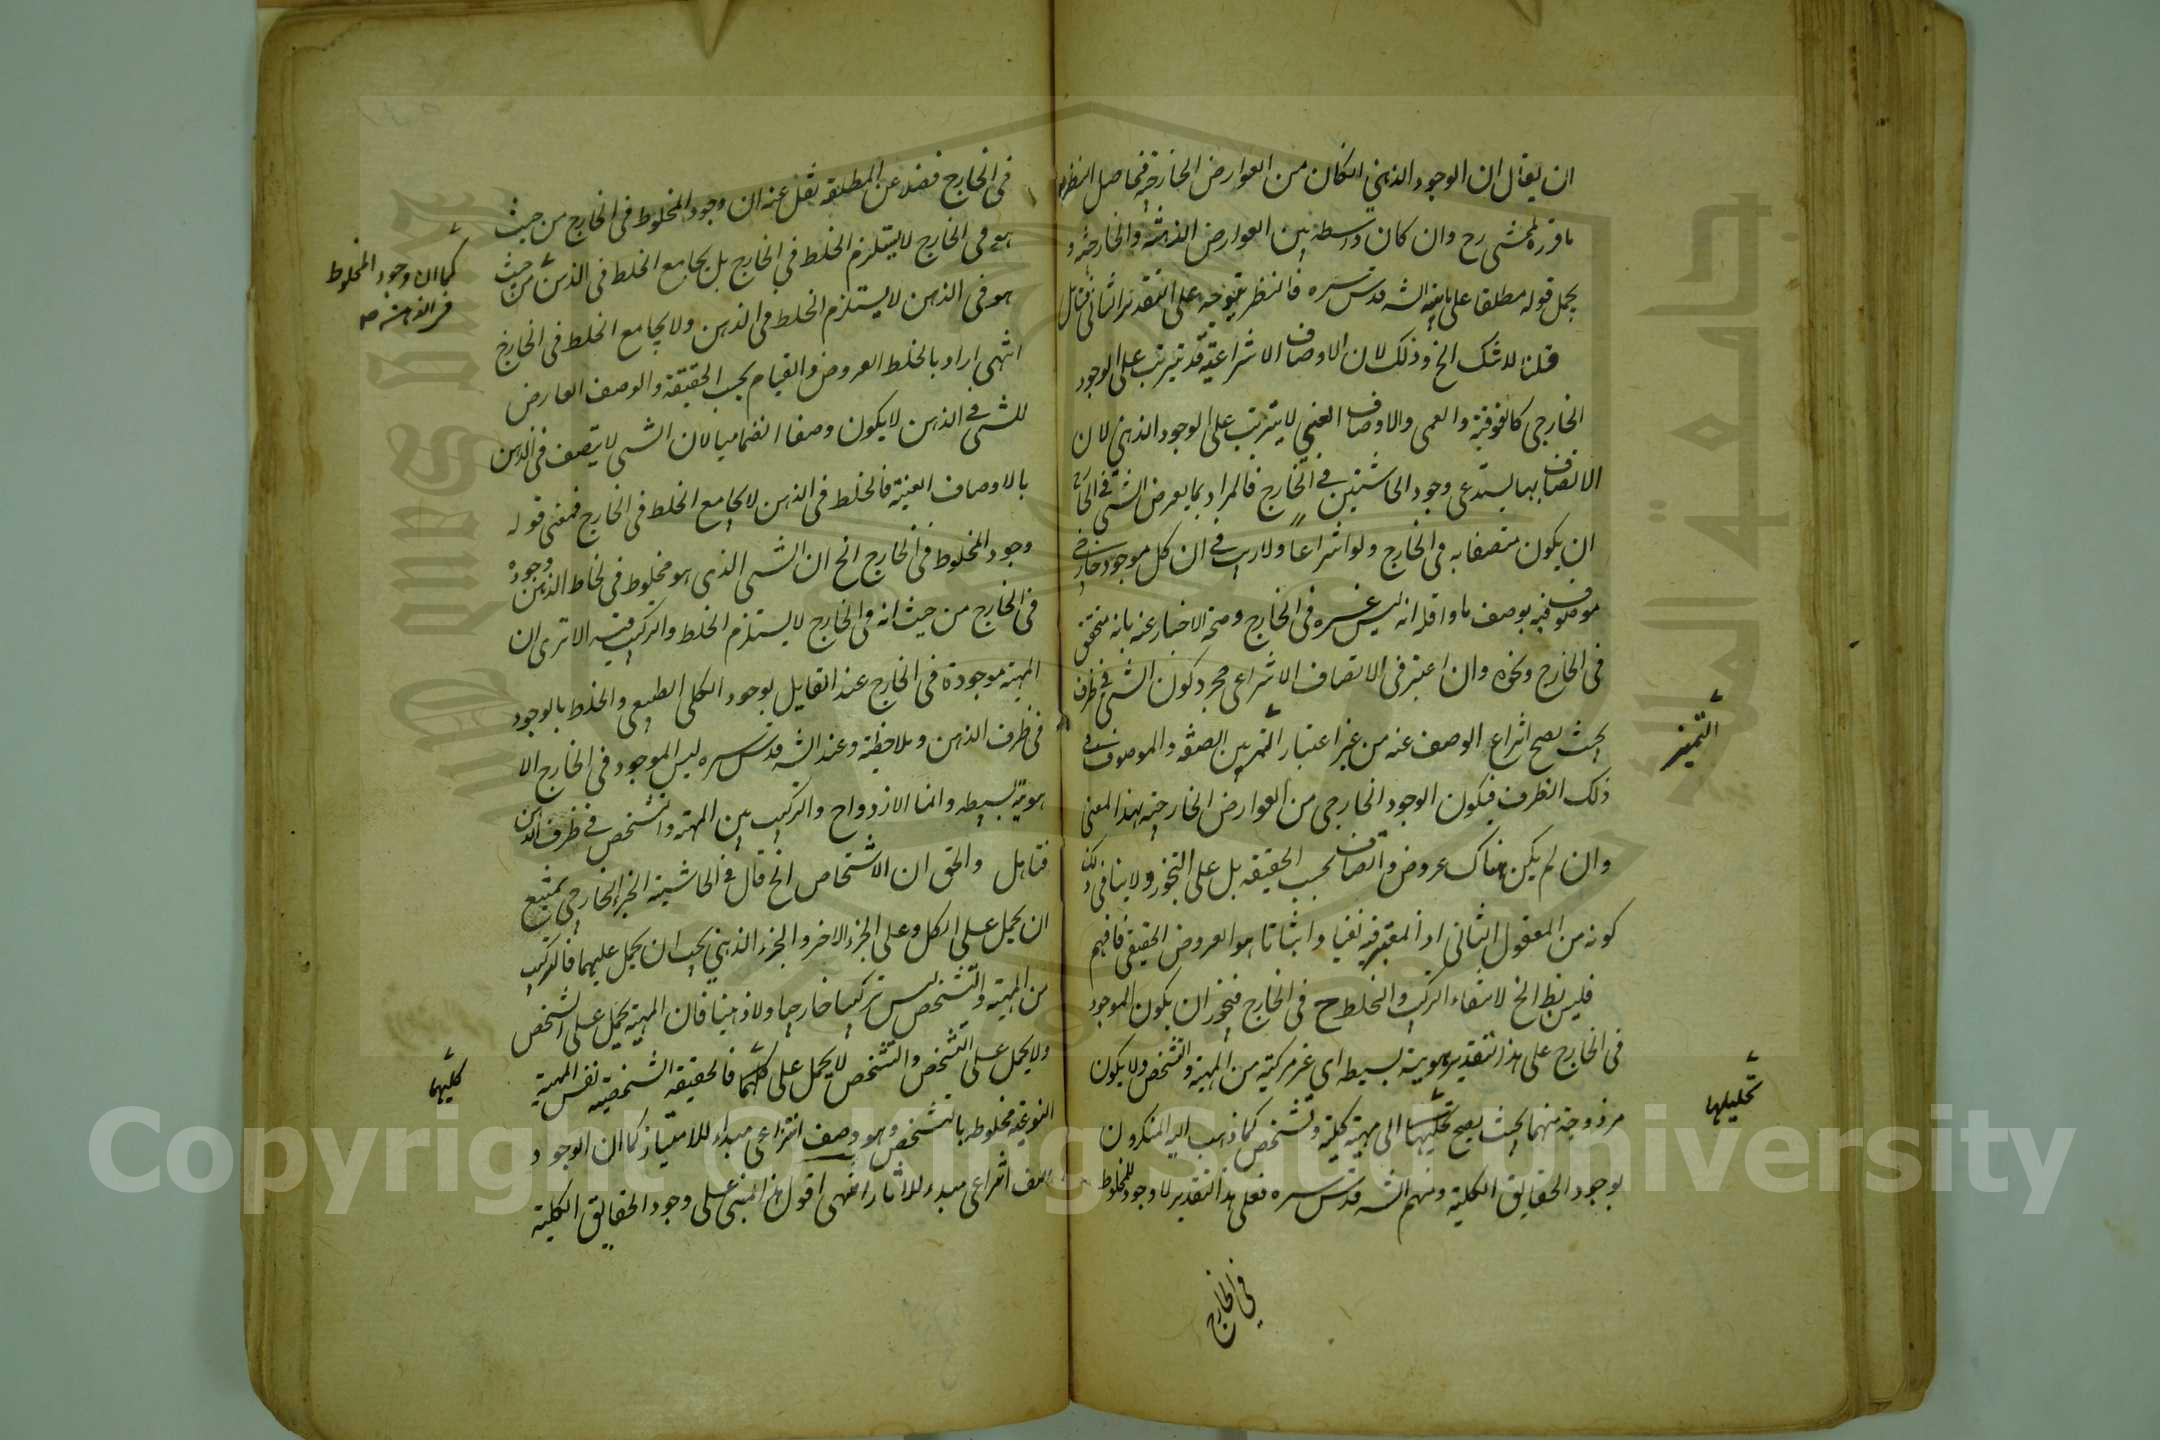 ان يقال ان الوجود الذهني الكان من العوارض الخارجية فيحاصل النظر
ما قرره المحشي رح وان كان واسطة بين العوارض الذهنية والخارجية و
يحمل قوله مطلقا على الشه قدس سره فالنظر متوجه على التقدير الثاني فتامل
قلنا لا شك الخ وذلك لان الاوصاف الانتزاعية قد تترتب على الوجود
الخارجي كالفوقية والعمى والاوصاف العيني لا يترتب على الوجود الذهني لان
الاتصاف بها يستدعي وجود الحاشيتين في الخارج فالمراد بما يعرض الشي في الخارج
ان يكون متصفا به في الخارج ولو انتزاعا ولا ريب في ان كل موجود خارجي
موصوف فيه بوصف ما واقله انه ليس غيره في الخارج وصحة الاخبار عنه بانه متحقق
في الخارج ونحوه وان اعتبر في الاتصاف الانتزاعي مجرد كون الشي في ظرف
بحيث يصح انتزاع الوصف عنه من غير اعتبار التميز بين الصفة والموصوف في
التميز
ذلك الظرف فيكون الوجود الخارجي من العوارض الخارجية بهذا المعنى
وان لم يكن هناك عروض واتصاف بحسب الحقيقة بل على التجوز ولا ينافي ذلك
كونه من المعقول الثاني اذ المعتبر فيه نفيا واثباتا هو العروض الحقيقي فافهم
فليربط الخ لانتفاء التركيب والخلط ح في الخارج فيجوز ان يكون الموجود
في الخارج على هذا التقدير هوية بسيطة اي غير مركبة من المهية والتشخص ولا يكون
مزدوجة منهما بحيث يصح تحليلها الى مهية كلية وتشخص كما ذهب اليه المنكرون
تحليلها
بوجود الحقايق الكلية ومنهم الشه قدس سره فعلى هذا التقدير لا وجود للمخلوط
في الخارج
في الخارج فضلا عن المطلقة نقل عنه ان وجود المخلوط في الخارج من حيث
هو في الخارج لا يستلزم الخلط في الخارج بل يجامع الخلط في الذهن من حيث
كما ان وجود المخلوط
في الذهن
هو في الذهن لا يستلزم الخلط في الذهن ولا يجامع الخلط في الخارج
انتهى اراد بالخلط العروض والقيام بحسب الحقيقة والوصف العارض
للشي في الذهن لا يكون وصفا انضماميا لان الشي لا يتصف في الذهن
بالاوصاف العينية فالخلط في الذهن لا يجامع الخلط في الخارج فمعنى قوله
وجود المخلوط في الخارج الخ ان الشي الذي هو مخلوط في لحاظ الذهن وجوده
في الخارج من حيث انه في الخارج لا يستلزم الخلط والتركيب فيه الا ترى ان
المهية موجودة في الخارج عند القايل بوجود الكلي الطبيعي والخلط بالوجود
في ظرف الذهن وملاحظته وعند الشه قدس سره ليس الموجود في الخارج الا
هوية بسيطة وانما الازدواج والتركيب بين المهية والتشخص في ظرف الذهن
فتامل والحق ان الاشخاص الخ قال في الحاشية الجزء الخارجي يمتنع
ان يحمل على الكل وعلى الجزء الاخر والجزء الذهني يجب ان يحمل عليهما فالتركيب
من المهية والتشخص ليس تركيبا خارجيا ولا ذهنيا فان المهية يحمل على الشخص
ولا يحمل على التشخص والتشخص لا يحمل على كليهما فالحقيقة الشخصية نفس المهية
كليهما
النوعية مخلوطة بالتشخص وهو وصف انتزاعي مبداء للامتياز كما ان الوجود
وصف انتزاعي مبدء للاثار انتهى اقول هذا مبني على وجود الحقايق الكلية
Copyright © King Saud University